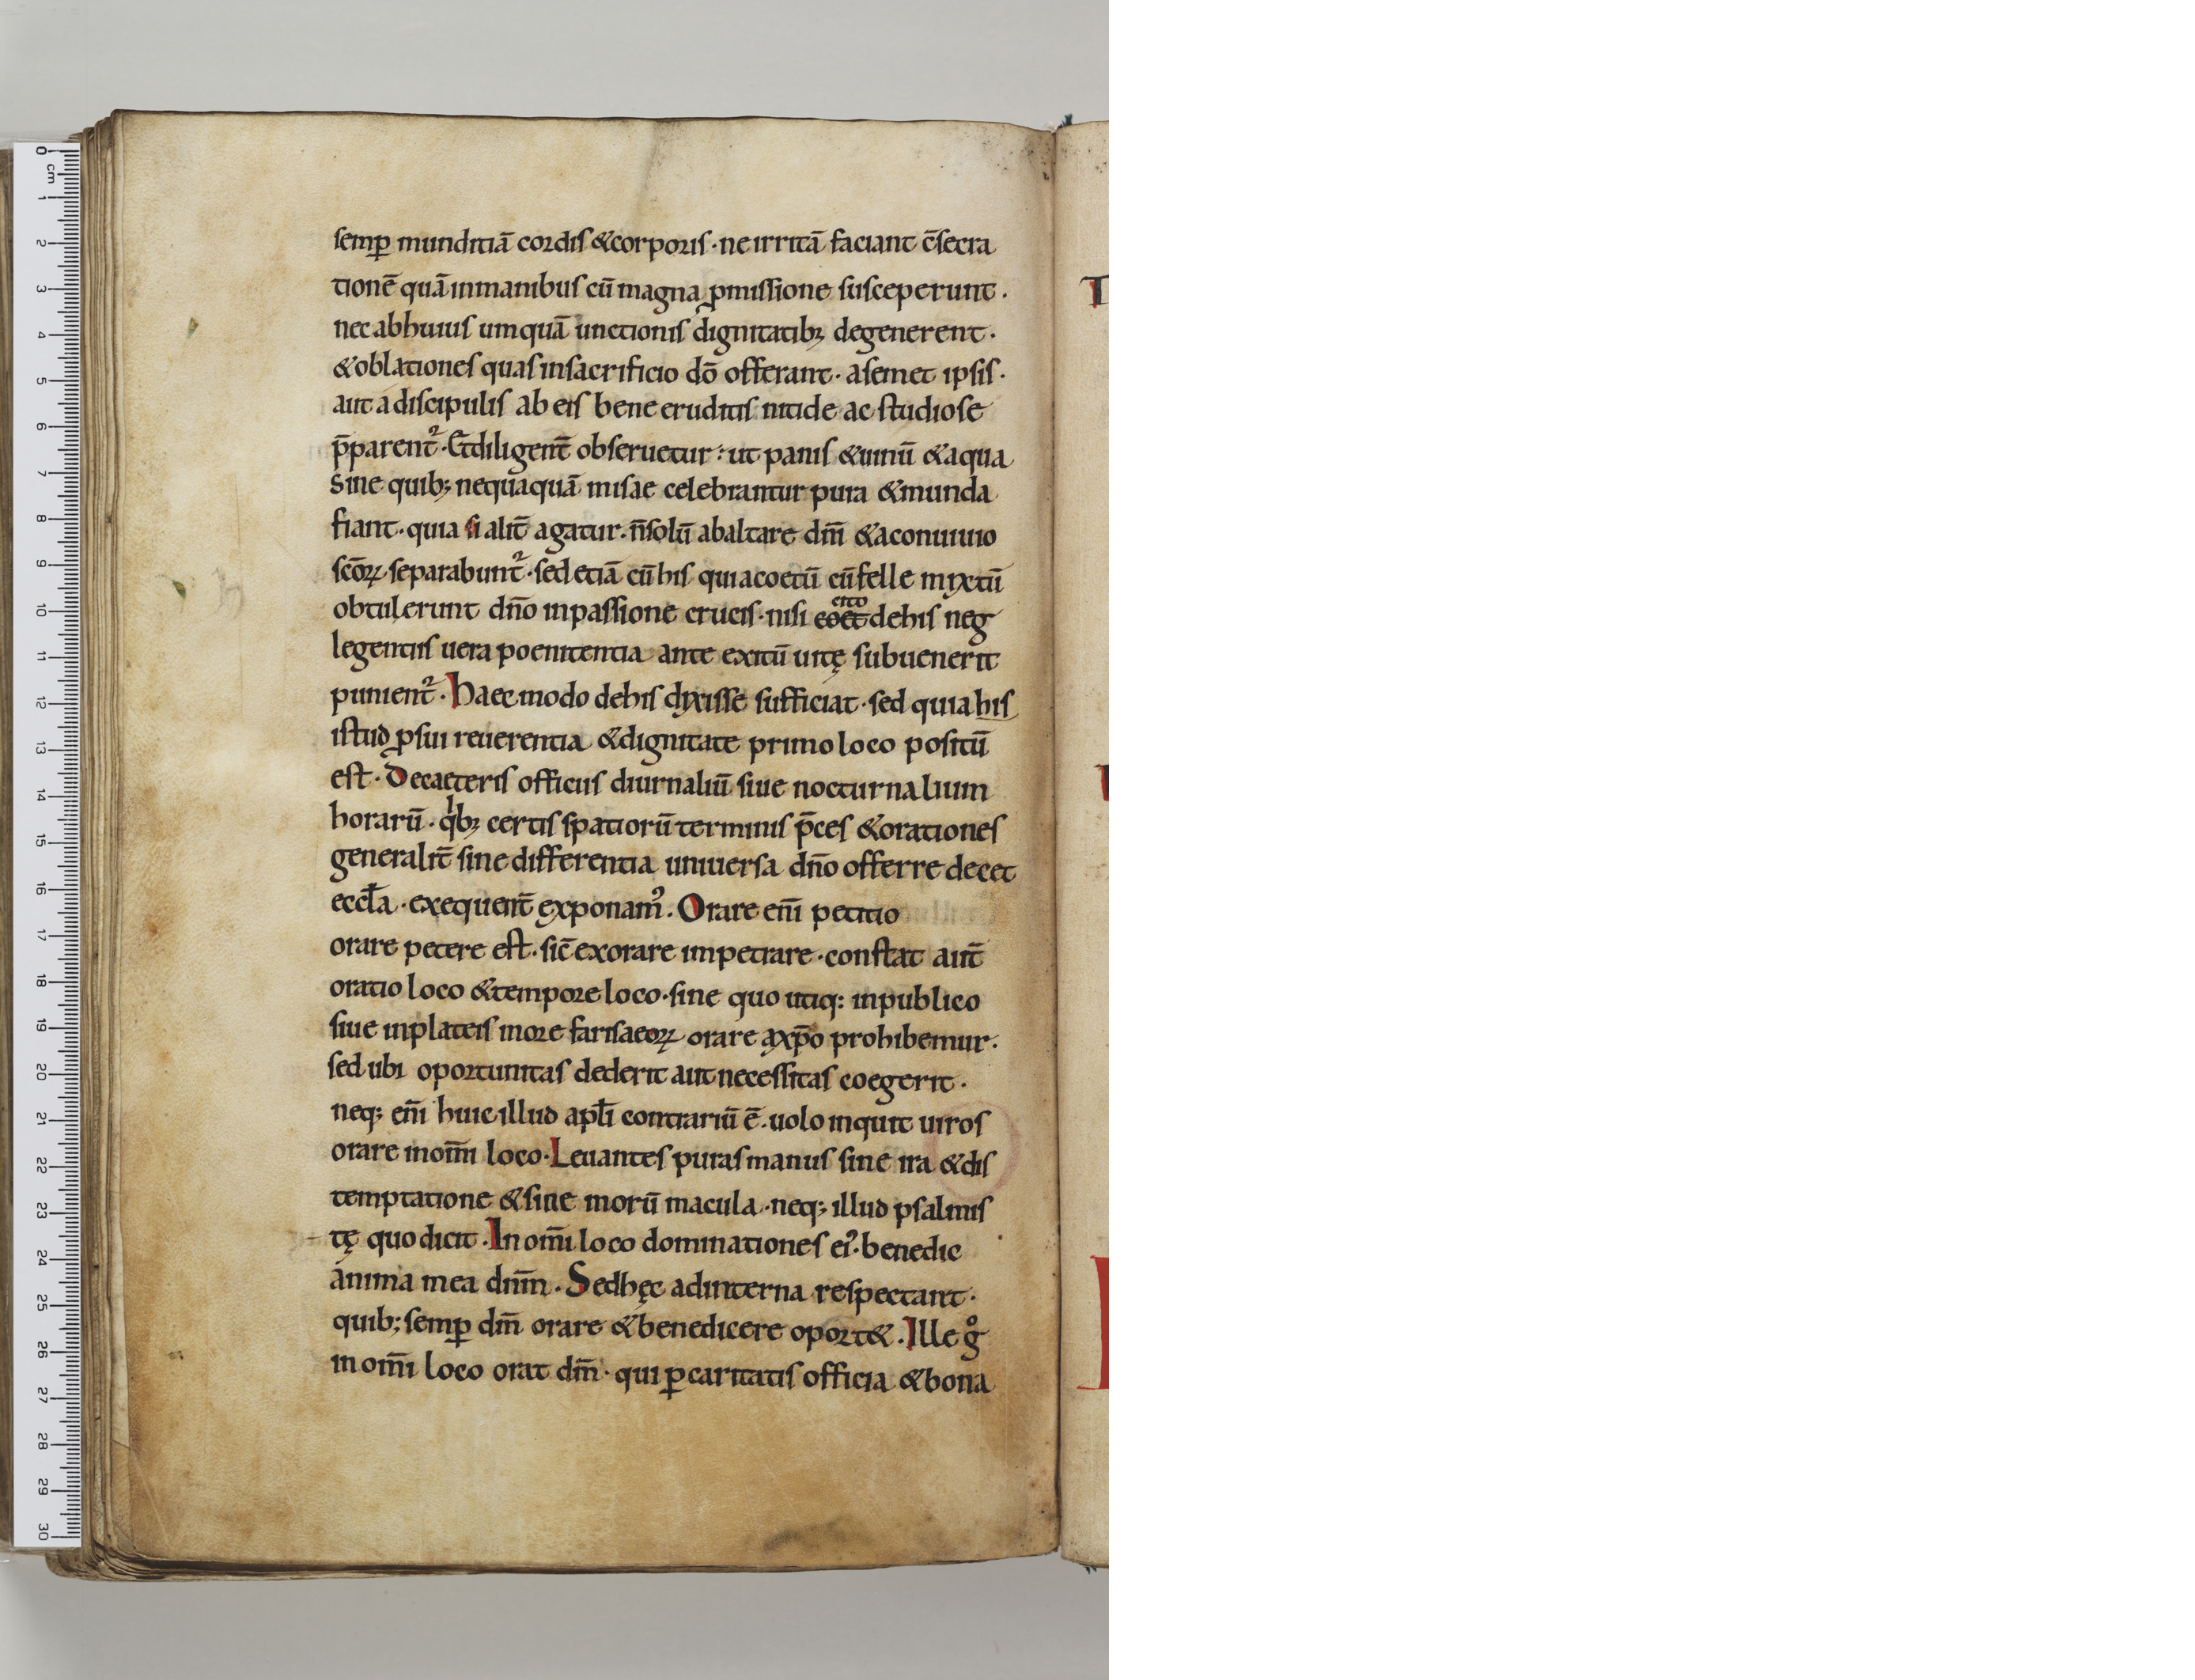 semꝑ munditiā cordis &corporis · ne irritā faciant c̄secra
tionē quā inmanibus cū magna ꝓmissione susceperunt .
nec abhuius umquā unctionis dignitatibꝫ degenerent .
&oblationes quas insacrificio dō offerant · asemet ipsis .
aut a discipulis ab eis bene eruditis nitide ac studiose
p̄parent᷑ · Et diligent̄ obseruetur : ut panis &uinū &aqua
sine quib; nequaquā misae celebrantur pura &munda
fiant · quia si alit̄ agatur . n̄ solū abaltare dn̄i &aconuiuio
sc̄oꝝ separabunt᷑ · sed etiā cū his qui acoetū cū felle mixtū
obtulerunt dn̄o inpassione crucis · nisi coet cito dehis neg
legentiis uera poenitentia ante exitū uitę subuenerit
punient᷑ . Haec modo dehis dixisse sufficiat · sed quia his
istud ꝓ sui reuerentia &dignitate primo loco positū
est . De caeteris officiis diurnaliū siue nocturnalium
horarū . qⁱbꝫ certis spatiorū terminis p̄ces &orationes
generalit̄ sine differentia uniuersa dn̄o offerre decet
eccl̄a . exequent̄ exponam᷒ . Orare eni̅ petitio
orare petere est . sic̄ exorare impetrare . constat aut̄
oratio loco &tempore loco · sine quo utiq: inpublico
siue inplateis more farisaeoꝝ orare axp̄o prohibemur .
sed ubi oportunitas dederit aut necessitas coegerit .
neq; eni̅ huic illud apl̄i contrariū ē . uolo inquit uiros
orare inom̄i loco . Leuantes puras manus sine ira &dis
temptatione &sine morū macula . neq; illud psalmis
tę quo dicit . In om̄i loco dominationes ei᷒ . benedic
anima mea dnm̄ . Sed hęc adinterna respectant .
quib; semꝑ dm̄ orare &benedicere oport& . Ille gͦ
in om̄i loco orat dm̄ . qui ꝑ caritatis officia &bona
0
cm
1
2
3
4
5
6
7
8
9
10
11
12
13
14
15
16
17
18
19
20
21
22
23
24
25
26
27
28
29
30